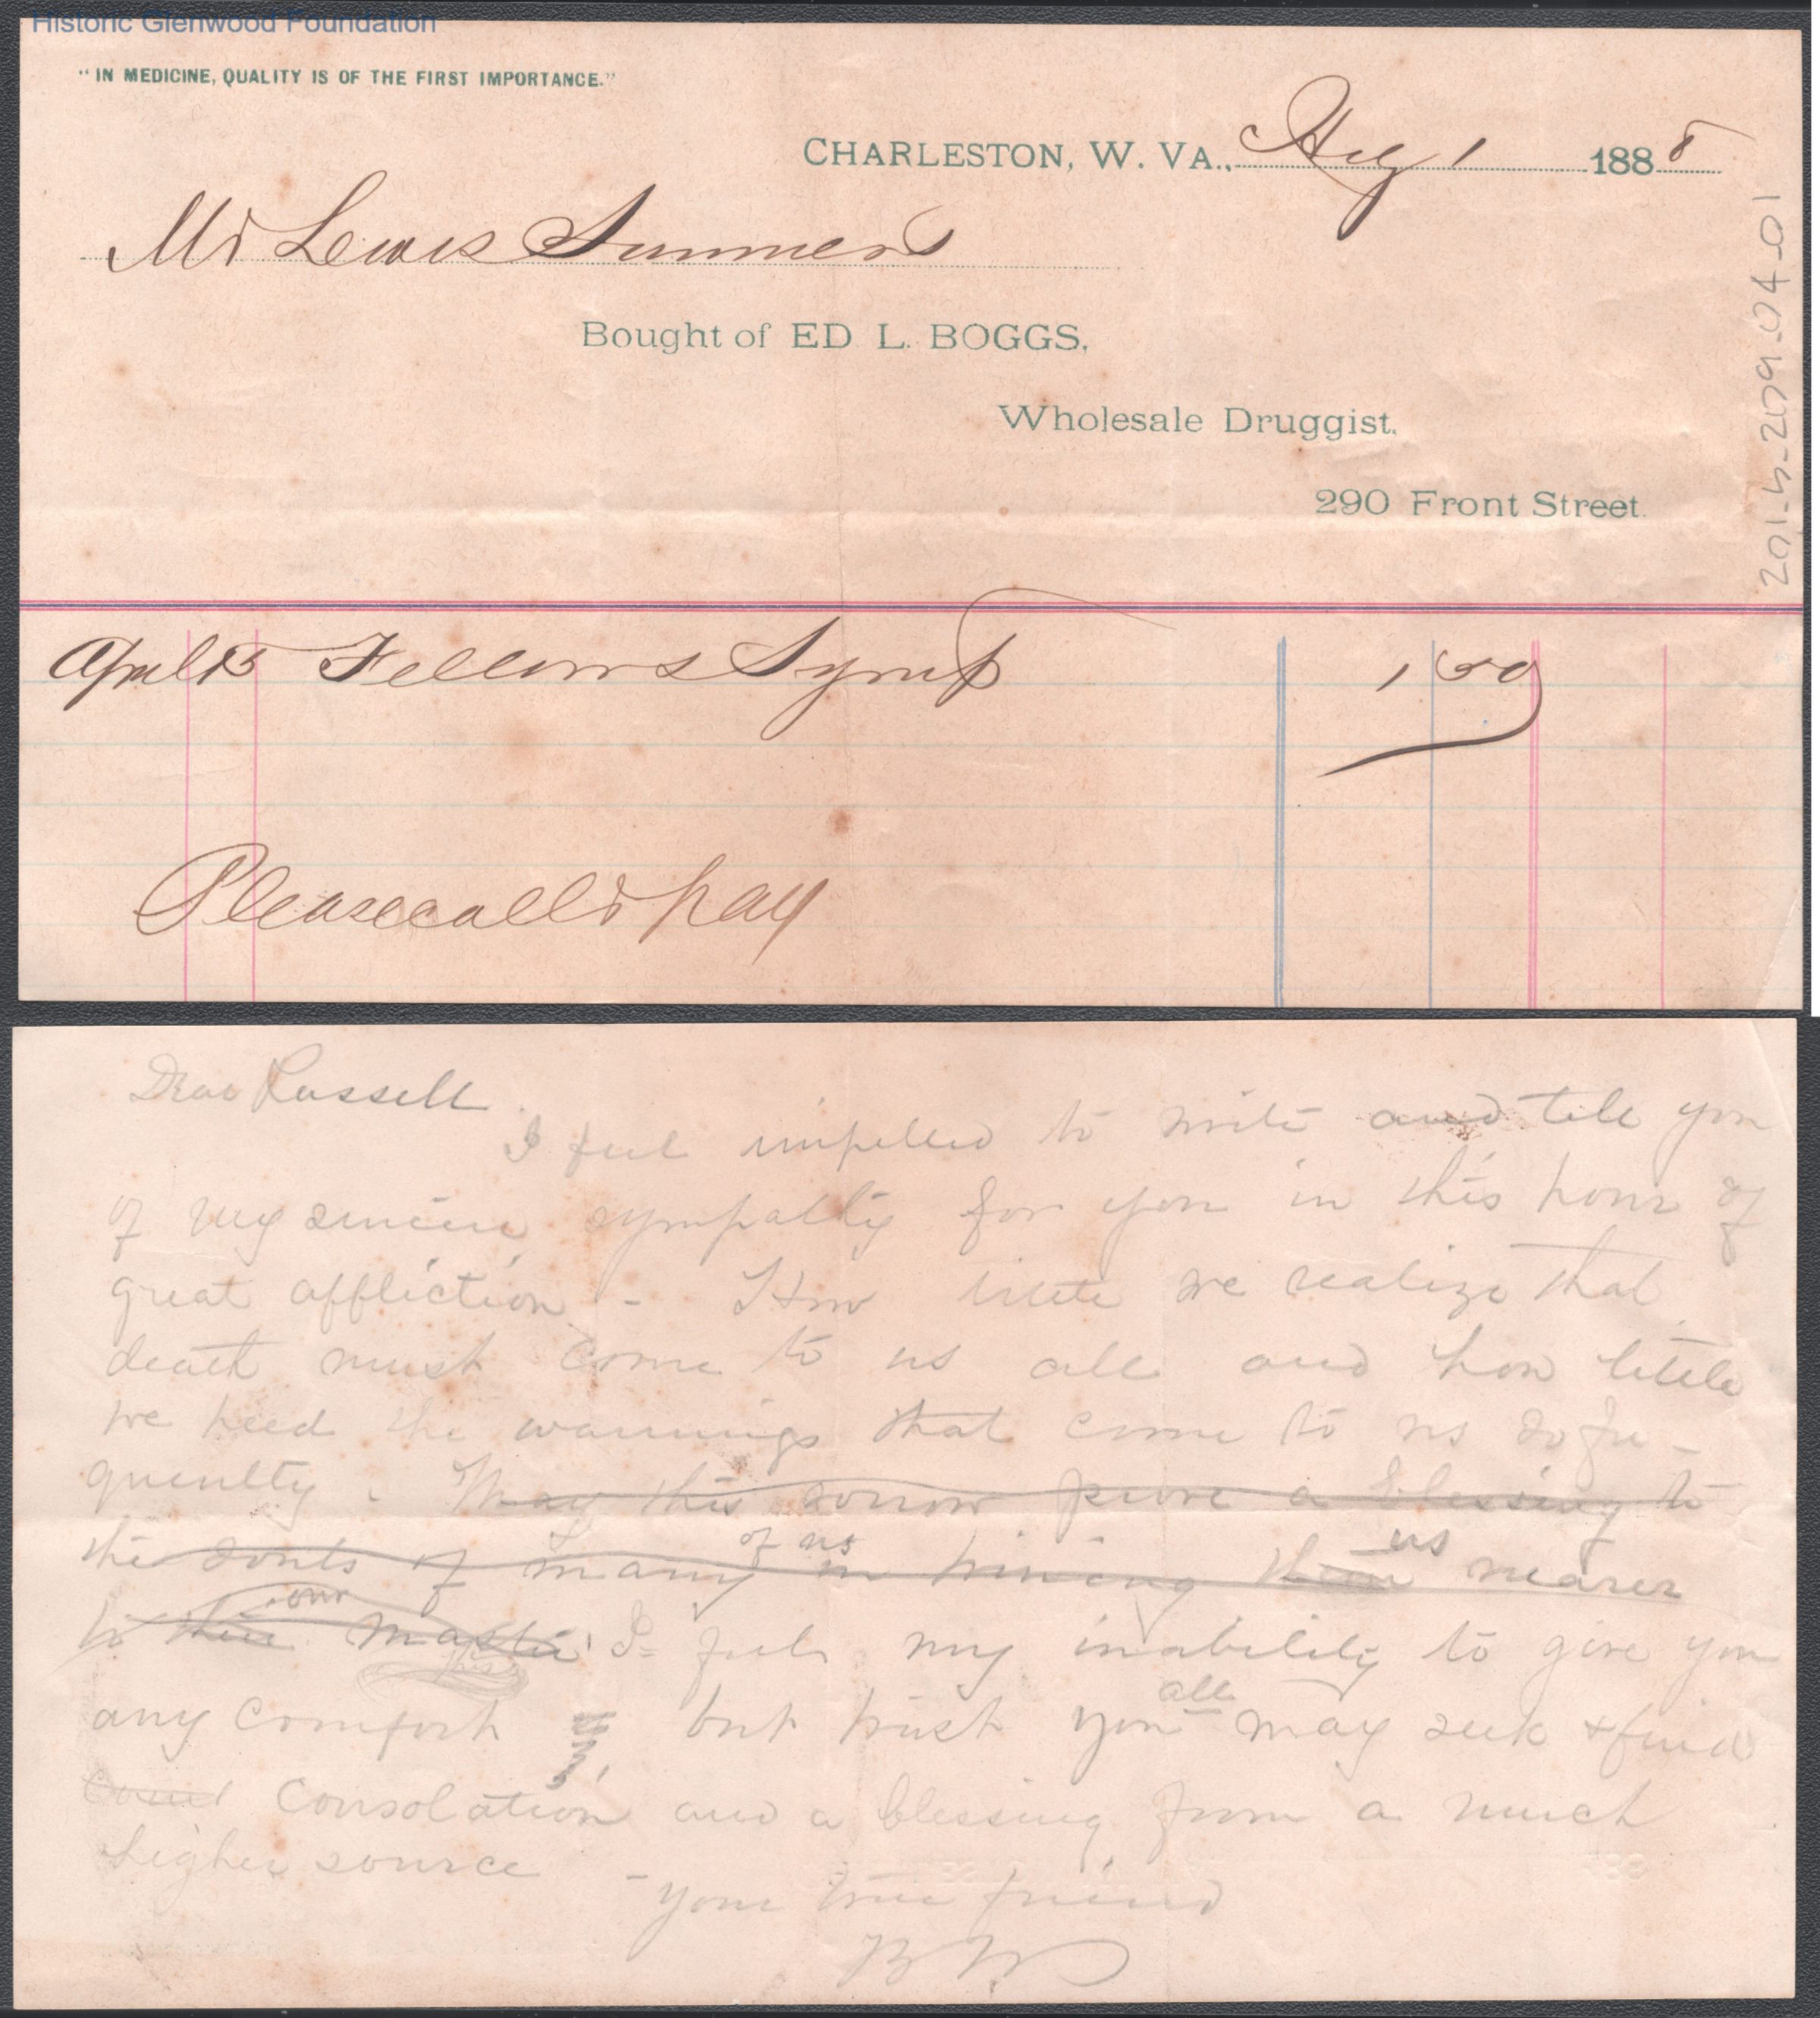 Historic Glenwood Foundation
"IN MEDICINE, QUALITY IS OF THE FIRST IMPORTANCE."
CHARLESTON, W. VA., Aug 1 1888
Mr Lewis Summers
Bought of ED L. BOGGS,
Wholesale Druggist.
290 Front Street.
201-4-209-04-01
April 13 Fellows Syrup 1 50
Please call & pay
Dear Russell
I feel impelled to write and tell you
of my sincere sympathy for you in this hour of
great affliction - How little we realize that
death must come to us all and how little
we heed the warnings that come to us so fre-
quently. May this sorrow prove a blessing to
of us us
the souls of many in driving them nearer
our
to their master I feel my inability to give you
all
any comfort but trust you may seek & find
consolation and a blessing from a much
higher source
- Your true friend